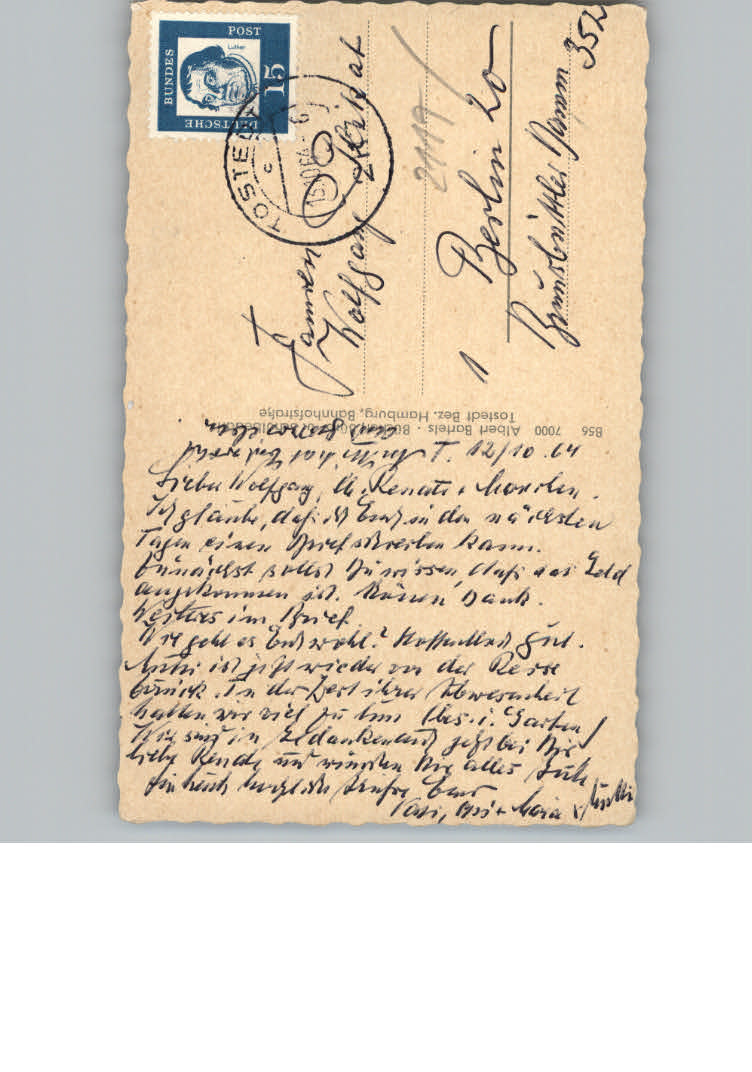 DEUTSCHE
BUNDES
POST
Luther
15
TOSTEDT
c
13.10.64
Familien
Wolfgang
2119
1 Berlin 20
Brunsbüttler Damm 352
B56 7000 Albert Bartels
Tostedt Bez. Hamburg, Bahnhofstraße
T. 12/10.64
Lieber Wolfgang, lb. Renate +
Ich glaube, daß ich Euch in den nächsten
Tagen einen Brief schreiben kann.
Zunächst sollst Du wissen, daß das Geld
angekommen ist. Schönen Dank.
Weiteres im Brief.
Wie geht es Euch wohl? Hoffentlich gut.
Mutti ist jetzt wieder von der Reise
zurück. In der Zeit ihrer Abwesenheit
hatten wir viel zu tun (bes. i. Garten)
Wir sind in Gedanken auch jetzt bei Dir
liebe Renate und wünschen Dir alles Gute
Seid herzlich Eure
Vati, + Maria + Mutti